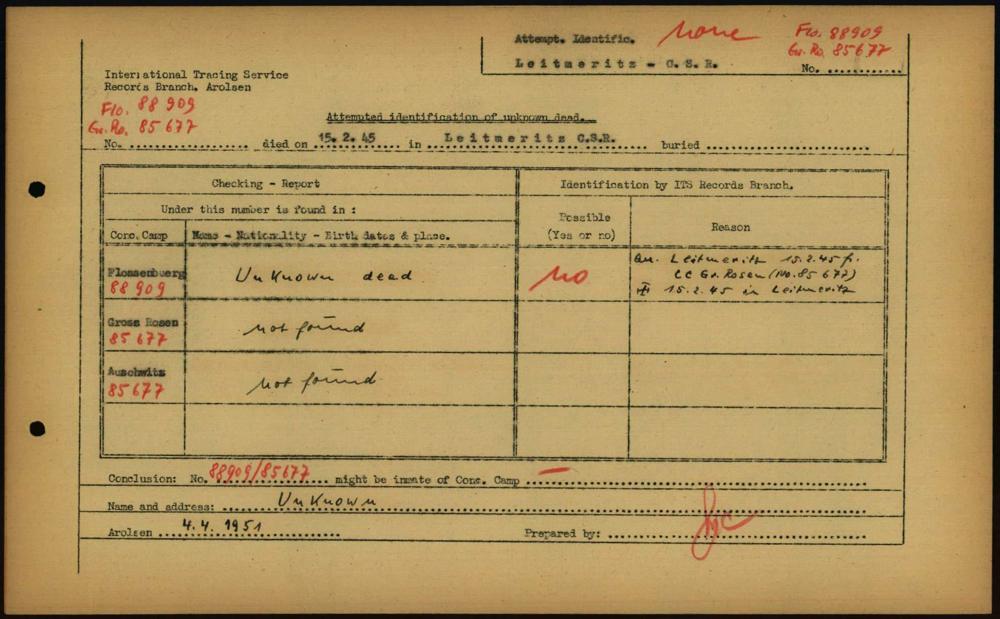 Attempt. Identific. none Flo. 88909
Gr. Ro. 85677
Leitmeritz - C.S.R. No. ............
International Tracing Service
Records Branch, Arolsen
Flo. 88 909
Gr. Ro. 85 677
Attempted identification of unknown dead.
No. .................. died on 15. 2. 45 in Leitmeritz C.S.R. buried ..........................
Checking - Report
Identification by ITS Records Branch.
Under this number is found in :
Possible
(Yes or no)
Reason
Conc. Camp
Name - Nationality - Birth dates & place.
Flossenbuerg
88 909
Unknown dead
no
Leitmeritz 15.2.45 f.
CC Gr. Rosen (No. 85 677)
15.2.45 in Leitmeritz
Gross Rosen
85 677
not found
Auschwitz
85 677
not found
Conclusion: No. 88909/85677 might be inmate of Conc. Camp — ..........................
Name and address: Unknown
Arolsen 4.4. 1951 Prepared by: ..........................